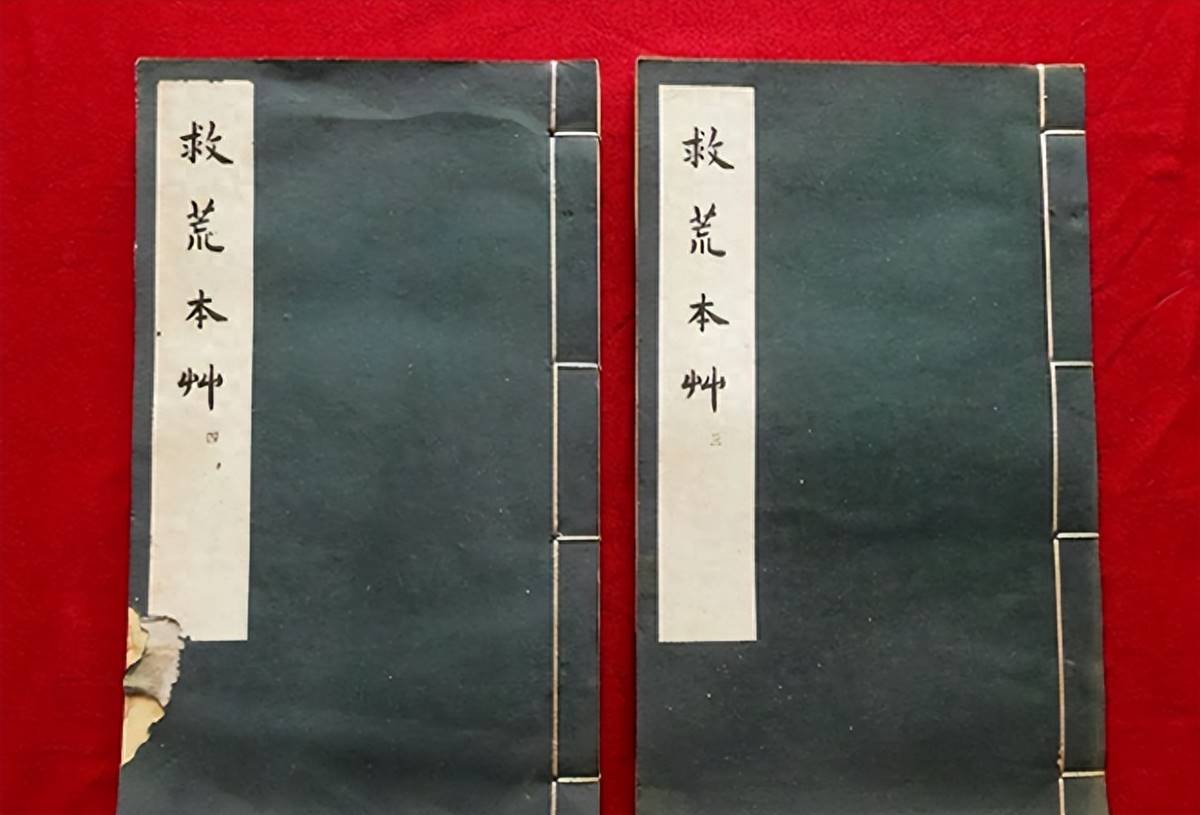 救荒本艸 四
救荒本艸 三